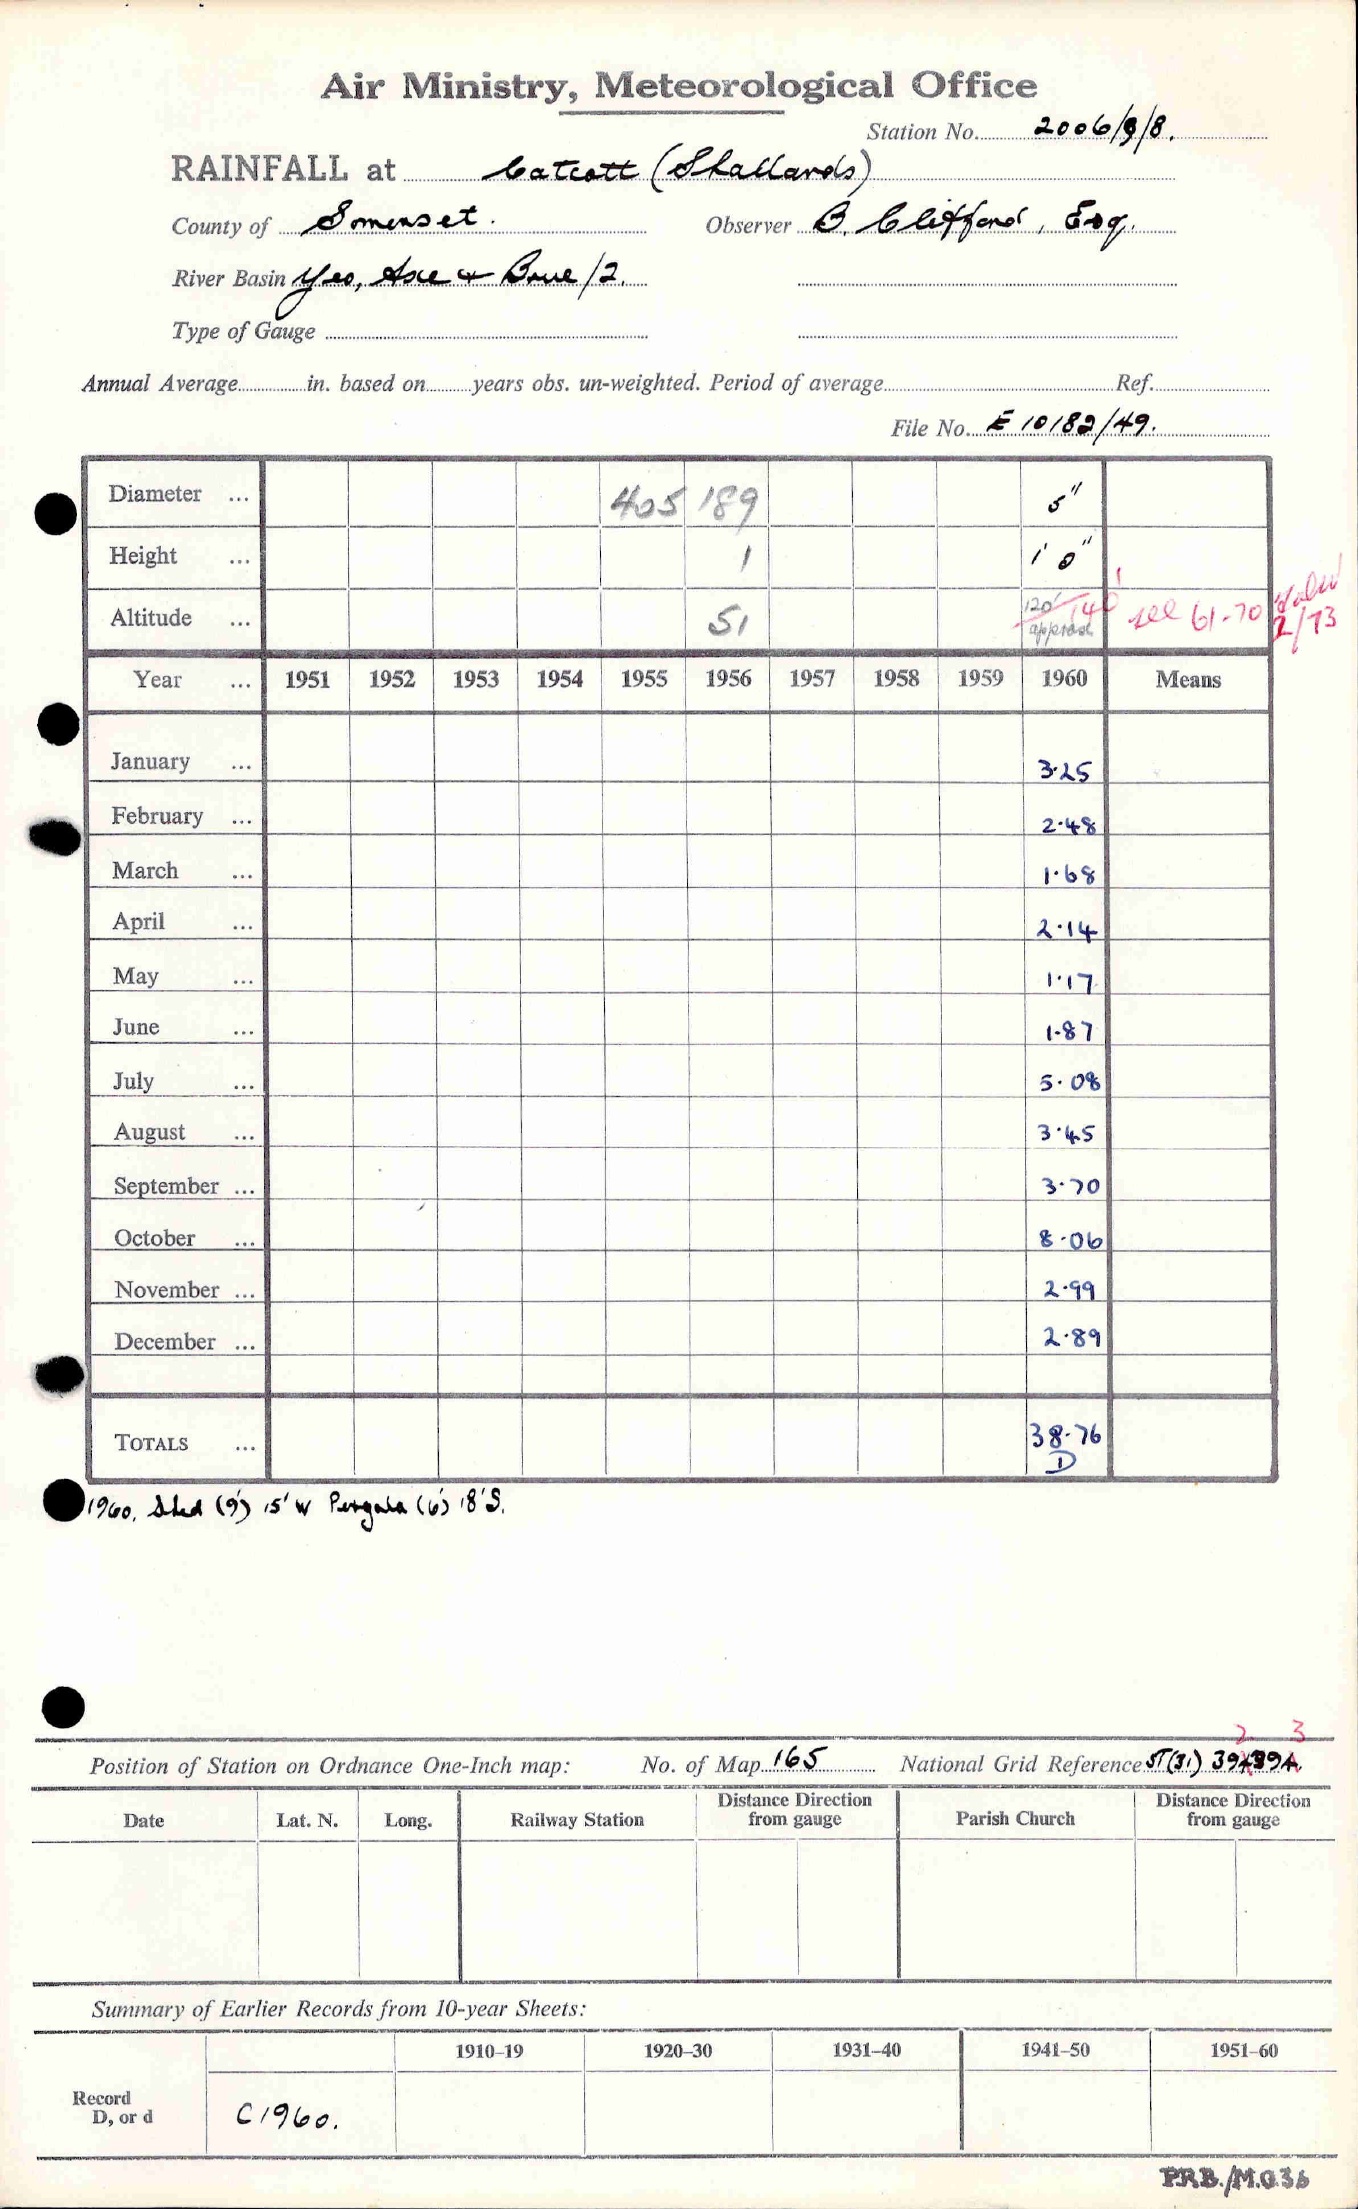 Air Ministry, Meteorological Office
Station No. 2006/9/8.
RAINFALL at Catcott (Shallards)
County of Somerset. Observer B. Clifford, Esq.
River Basin Yeo, Axe & Brue/2.
Type of Gauge
Annual Average in. based on years obs. un-weighted. Period of average Ref.
File No. E 10182/49.
Diameter ... 405 189 5"
Height ... 1 1' 0"
Altitude ... 51 120' approx 140' see 61-70 2/73
Year ... 1951 1952 1953 1954 1955 1956 1957 1958 1959 1960 Means
January ... 3.25
February ... 2.48
March ... 1.68
April ... 2.14
May ... 1.17
June ... 1.87
July ... 5.08
August ... 3.45
September ... 3.70
October ... 8.06
November ... 2.99
December ... 2.89
TOTALS ... 38.76
D
1960. Shed (9') 15' W Pergola (6') 18' S.
2 3
Position of Station on Ordnance One-Inch map: No. of Map 165 National Grid Reference ST(31) 394394.
Date Lat. N. Long. Railway Station Distance Direction from gauge Parish Church Distance Direction from gauge
Summary of Earlier Records from 10-year Sheets:
1910–19 1920–30 1931–40 1941–50 1951–60
Record
D, or d C1960.
PRB./M.O.36